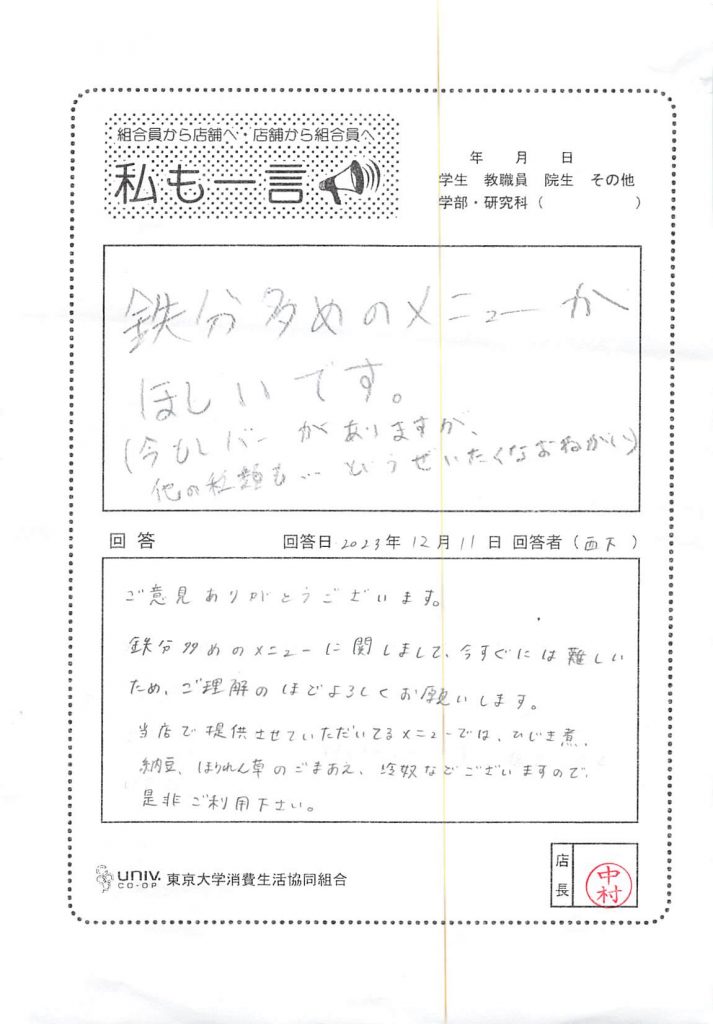 組合員から店舗へ・店舗から組合員へ
私も一言
年 月 日
学生 教職員 院生 その他
学部・研究科( )
鉄分多めのメニューが
ほしいです。
(今もレバーがありますが、
他の種類も… というぜいたくなおねがい)
回答 回答日 2023年 12月 11日 回答者(西下)
ご意見ありがとうございます。
鉄分多めのメニューに関しまして、今すぐには難しい
ため、ご理解のほどよろしくお願いします。
当店で提供させていただいてるメニューでは、ひじき煮、
納豆、ほうれん草のごまあえ、冷奴などございますので、
是非ご利用下さい。
UNIV. CO-OP 東京大学消費生活協同組合
店長 中村